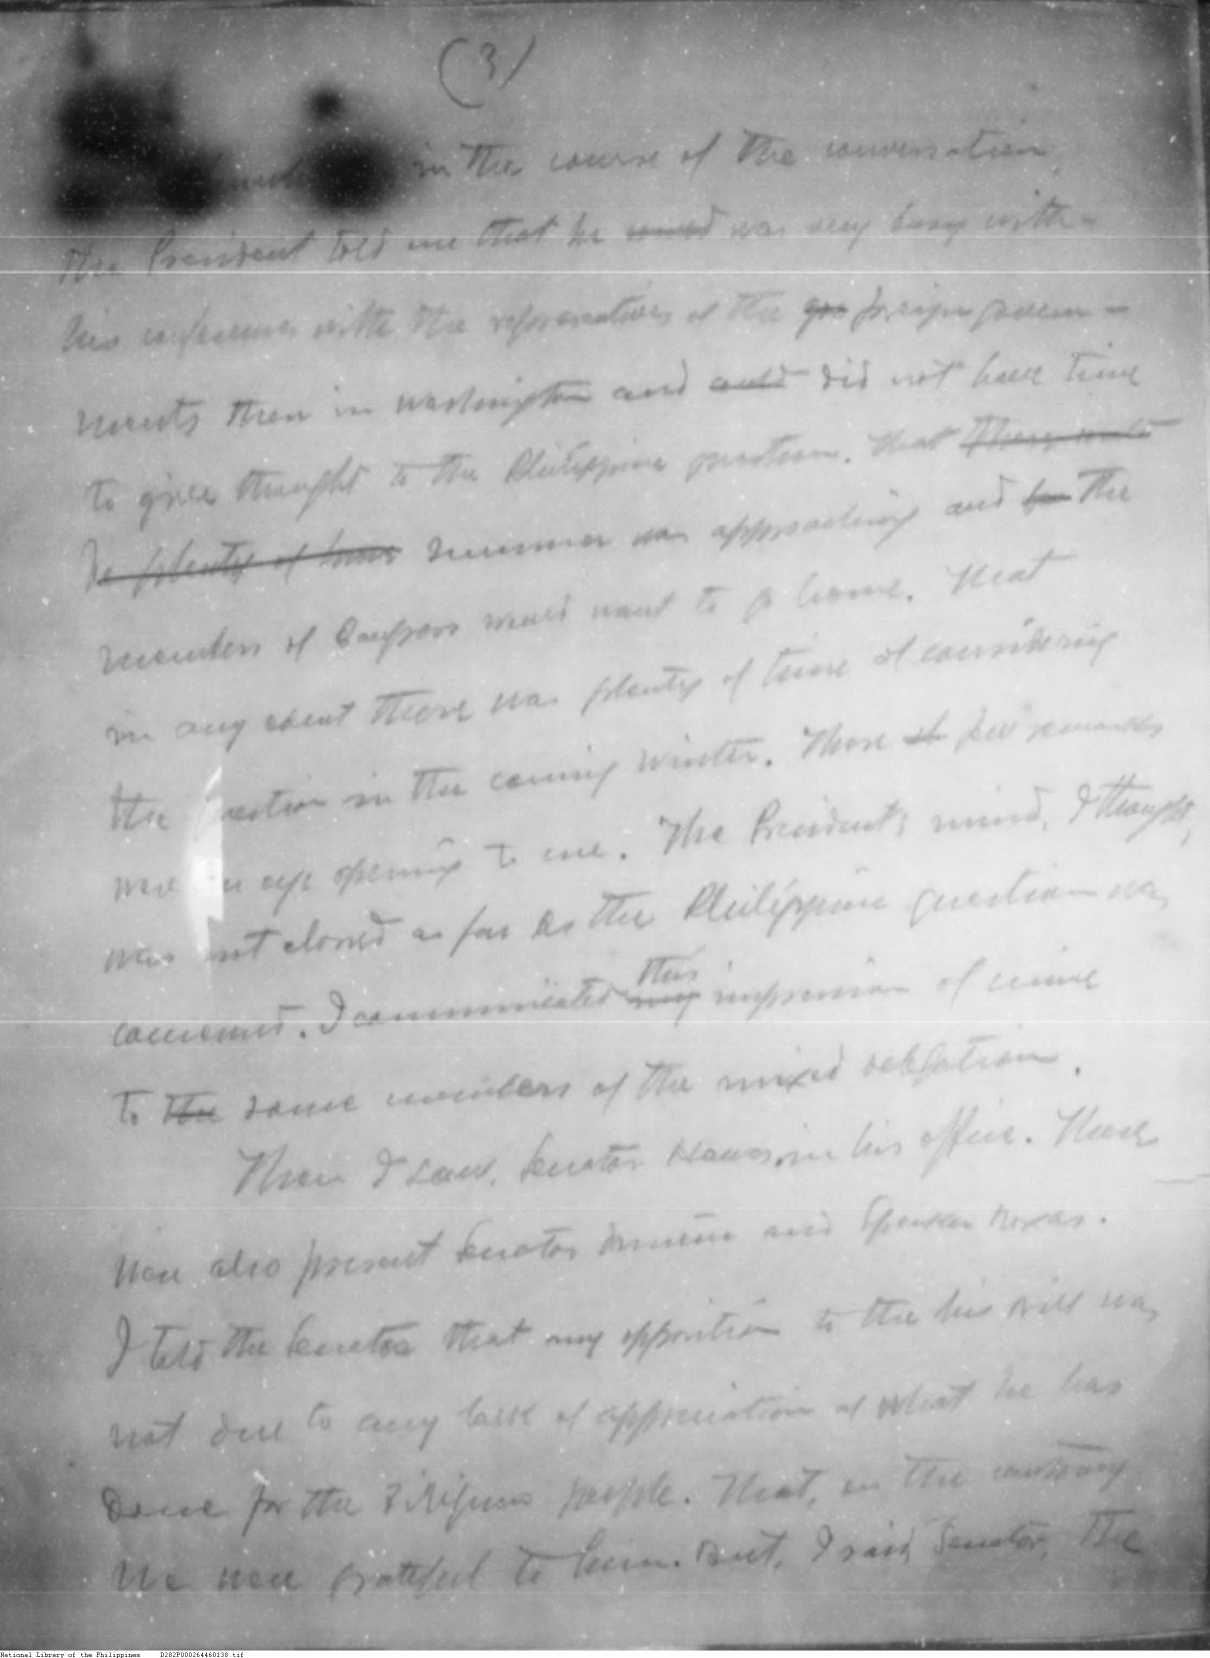 (3)
in the course of the conversation,
the President told me that he would was very busy with
his conferences with the representatives of the gov foreign govern-
ments then in Washington and could did not have time
to give thought to the Philippine question. That there would
be plenty of time summer was approaching and the
members of Congress would want to go home. That
in any event there was plenty of time of considering
the question in the coming winter. These few remarks
were eye opening to me. The President's mind, I thought,
was not closed as far as the Philippine question was
concerned. I communicated my this impression of mine
to the some members of the mixed delegation.
Then I saw Senator Hawes in his office. There
were also present Senator Osmeña and Speaker Roxas.
I told the Senator that my opposition to the his bill was
not due to any lack of appreciation of what he has
done for the Filipino people. That, on the contrary
we were grateful to him. But, I said, Senator, the
National Library of the Philippines D282P000264460138.tif